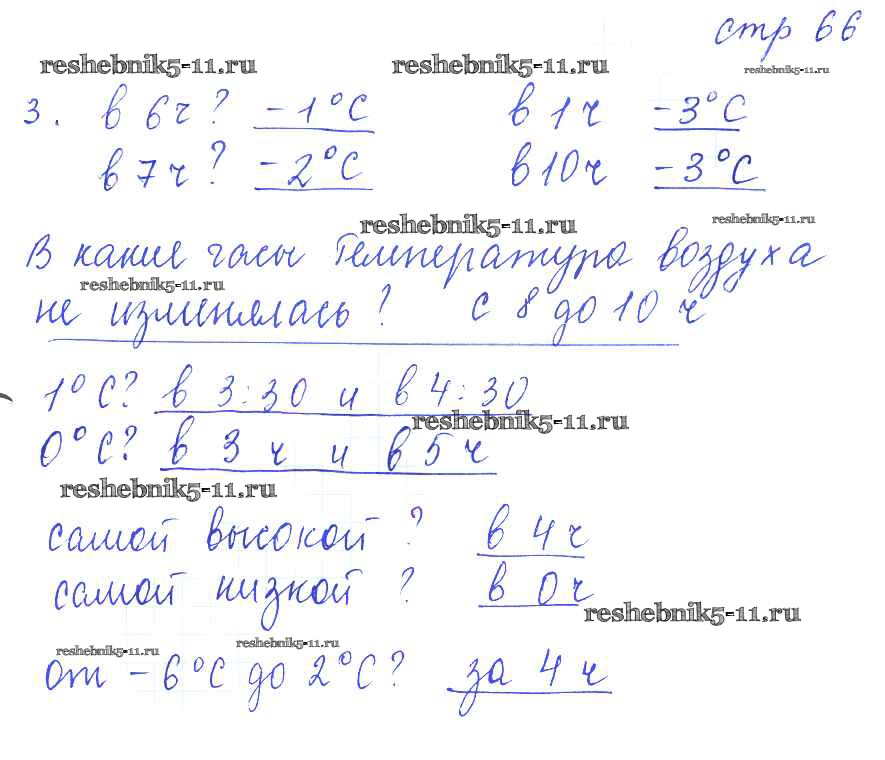 стр 66
reshebnik5-11.ru reshebnik5-11.ru reshebnik5-11.ru
3. в 6ч? -1°С в 1ч -3°С
в 7ч? -2°С в 10ч -3°С
reshebnik5-11.ru reshebnik5-11.ru
В какие часы температура воздуха
reshebnik5-11.ru
не изменялась? с 8 до 10 ч
1°С? в 3:30 и в 4:30
reshebnik5-11.ru
0°С? в 3 ч и в 5 ч
reshebnik5-11.ru
самой высокой? в 4ч
самой низкой? в 0ч
reshebnik5-11.ru
reshebnik5-11.ru reshebnik5-11.ru
от -6°С до 2°С? за 4 ч